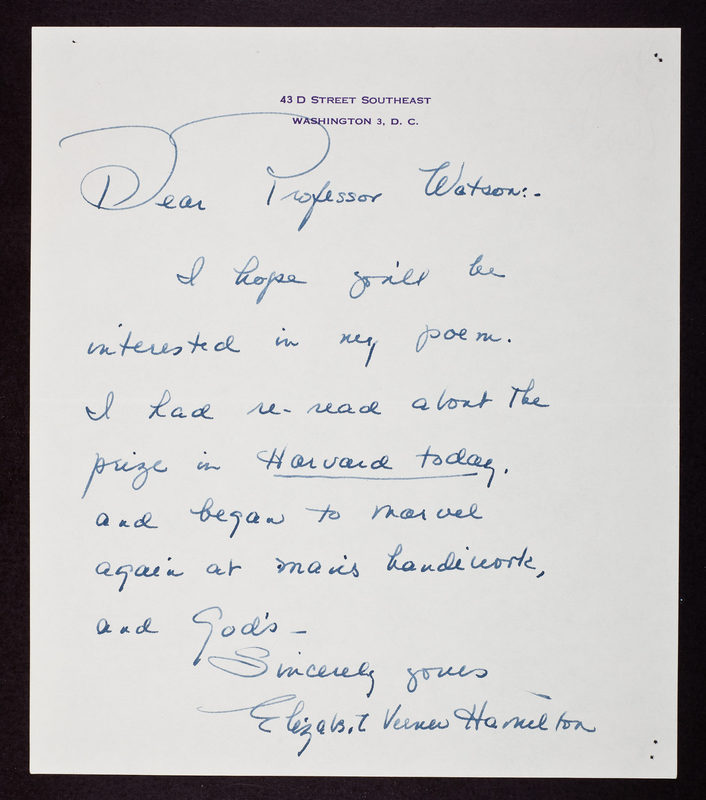 43 D STREET SOUTHEAST
WASHINGTON 3, D. C.
Dear Professor Watson:-
I hope you'll be
interested in my poem.
I had re-read about the
prize in Harvard today,
and began to marvel
again at man's handiwork,
and God's -
Sincerely yours
Elizabet Verner Hamilton